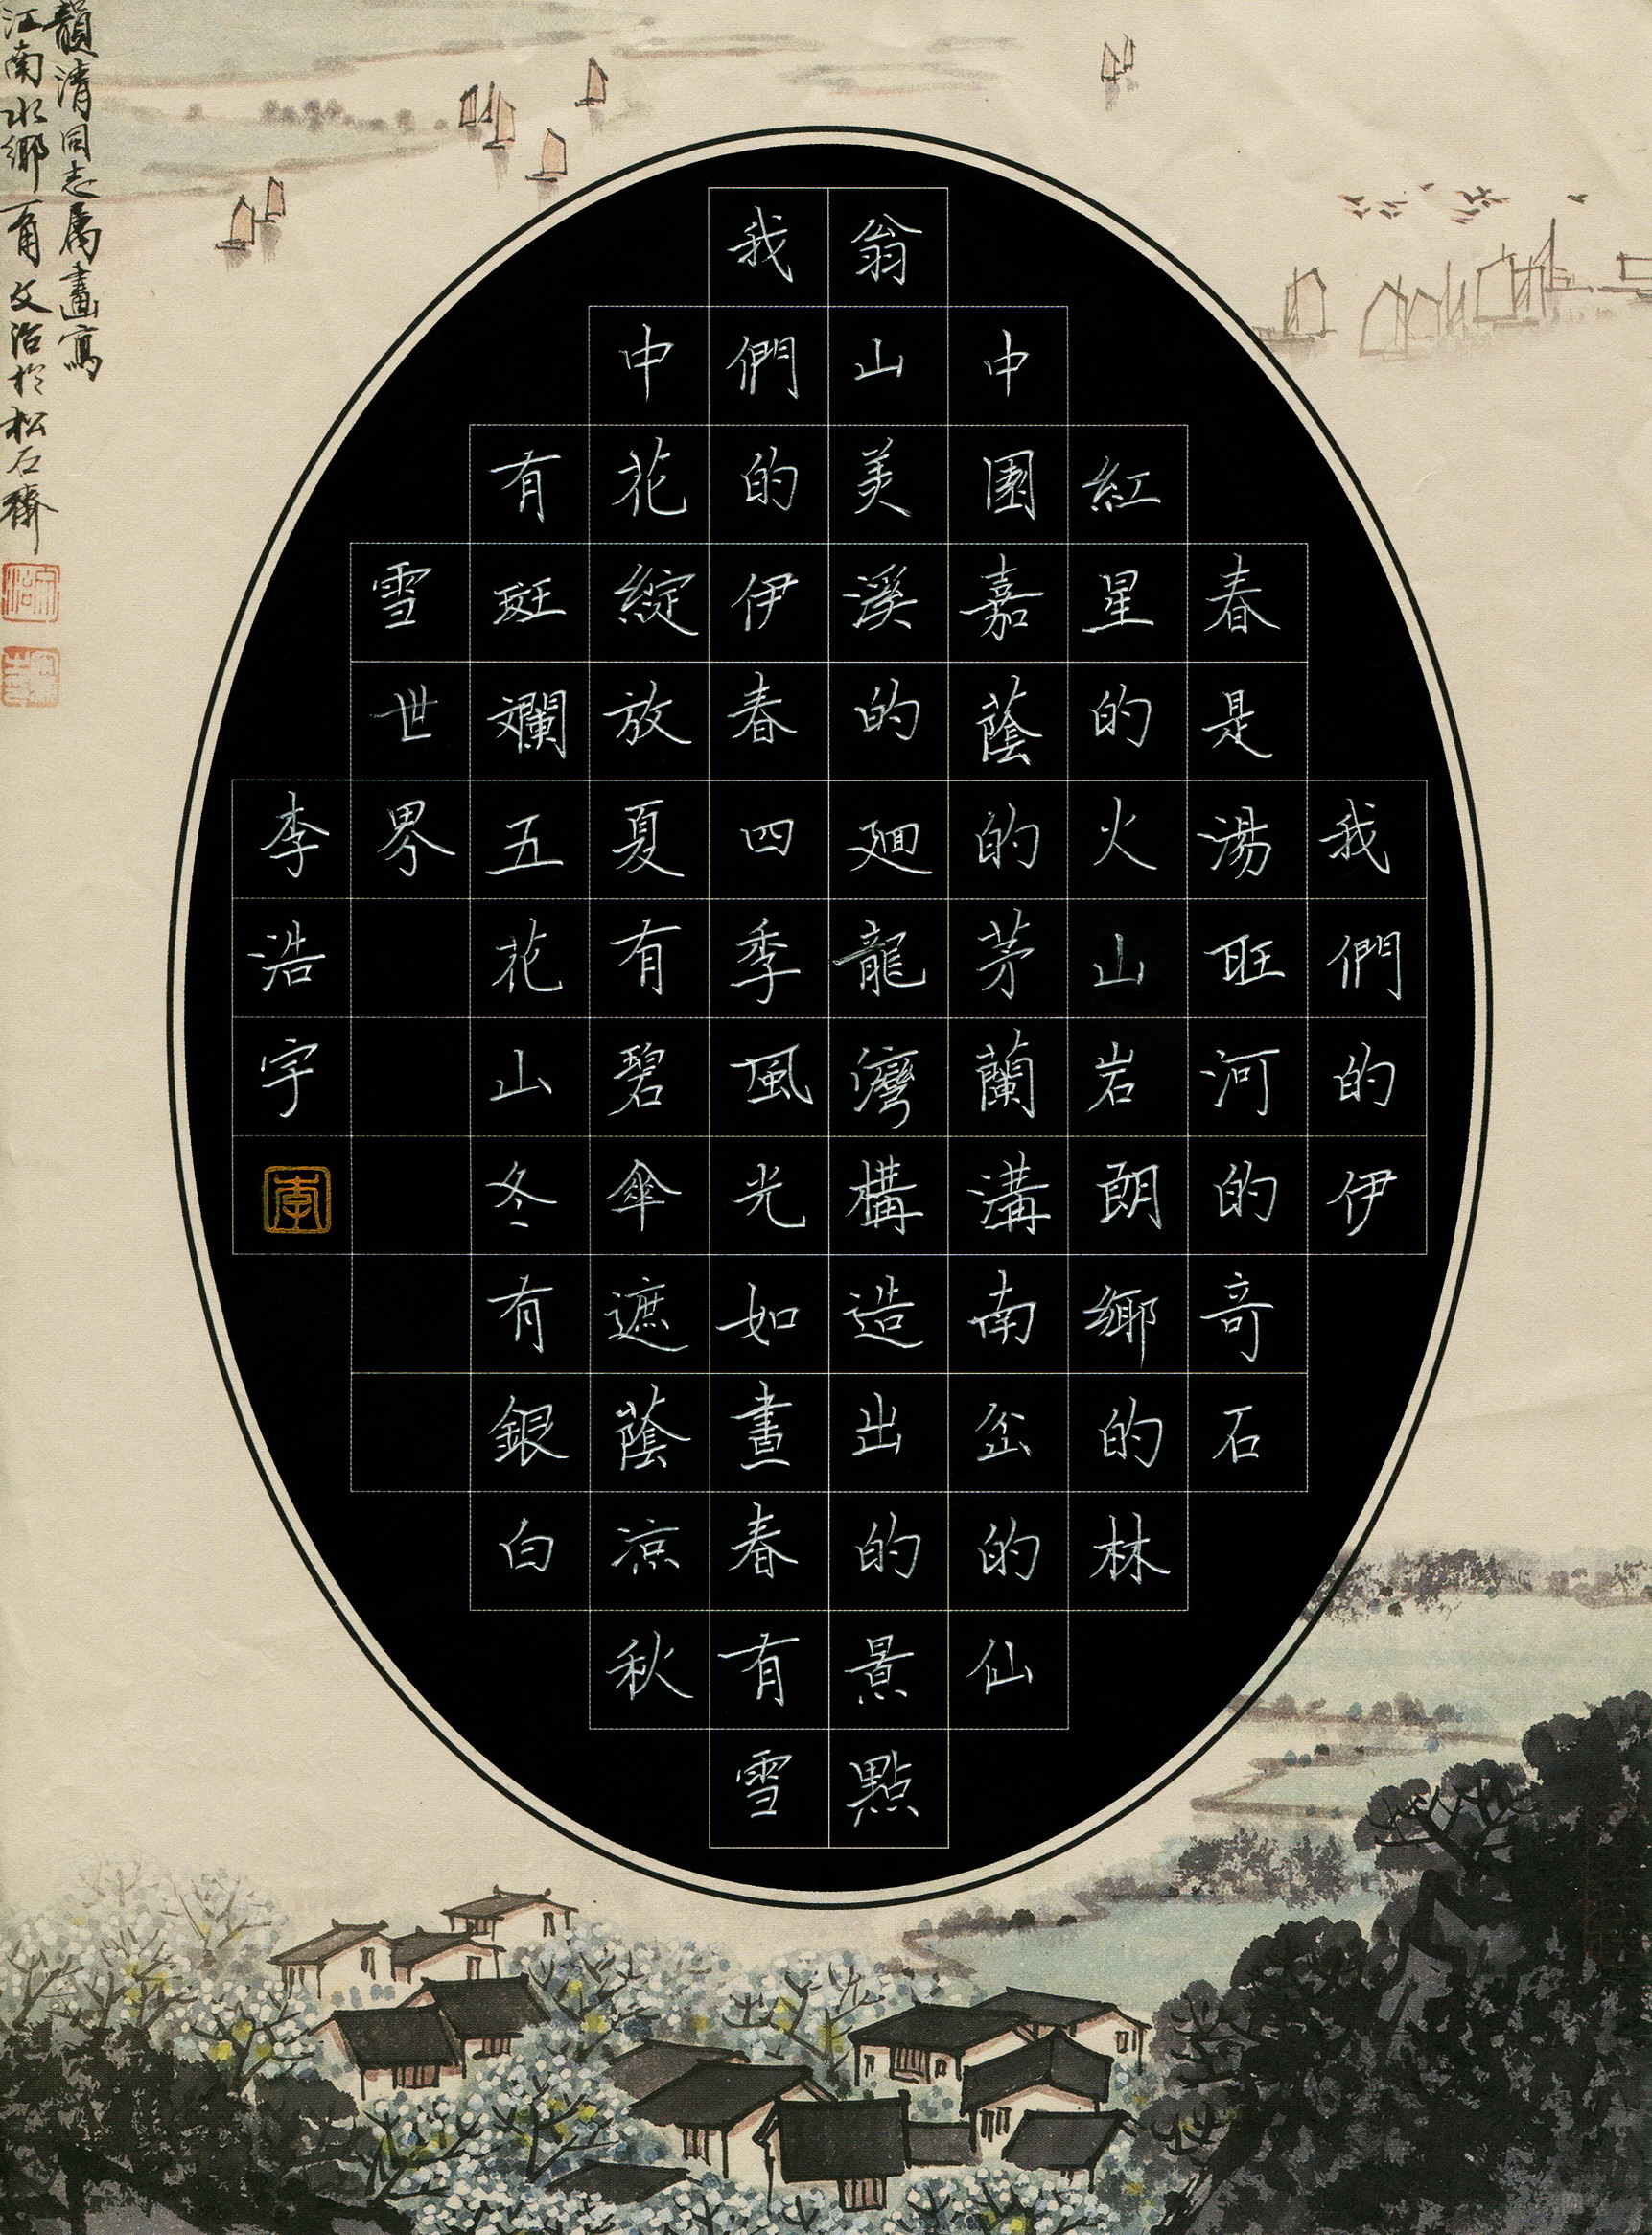 我們的伊
春是湯旺河的奇石
紅星的火山岩朗鄉的林
中國嘉蔭的茅蘭溝南岔的仙
翁山美溪的廻龍灣構造出的景點
我們的伊春四季風光如畫春有雪
中花綻放夏有碧傘遮蔭凉秋
有斑斕五花山冬有銀白
雪世界
李浩宇
李
韻清同志属畫寫
江南水鄉一角文治於松石齋